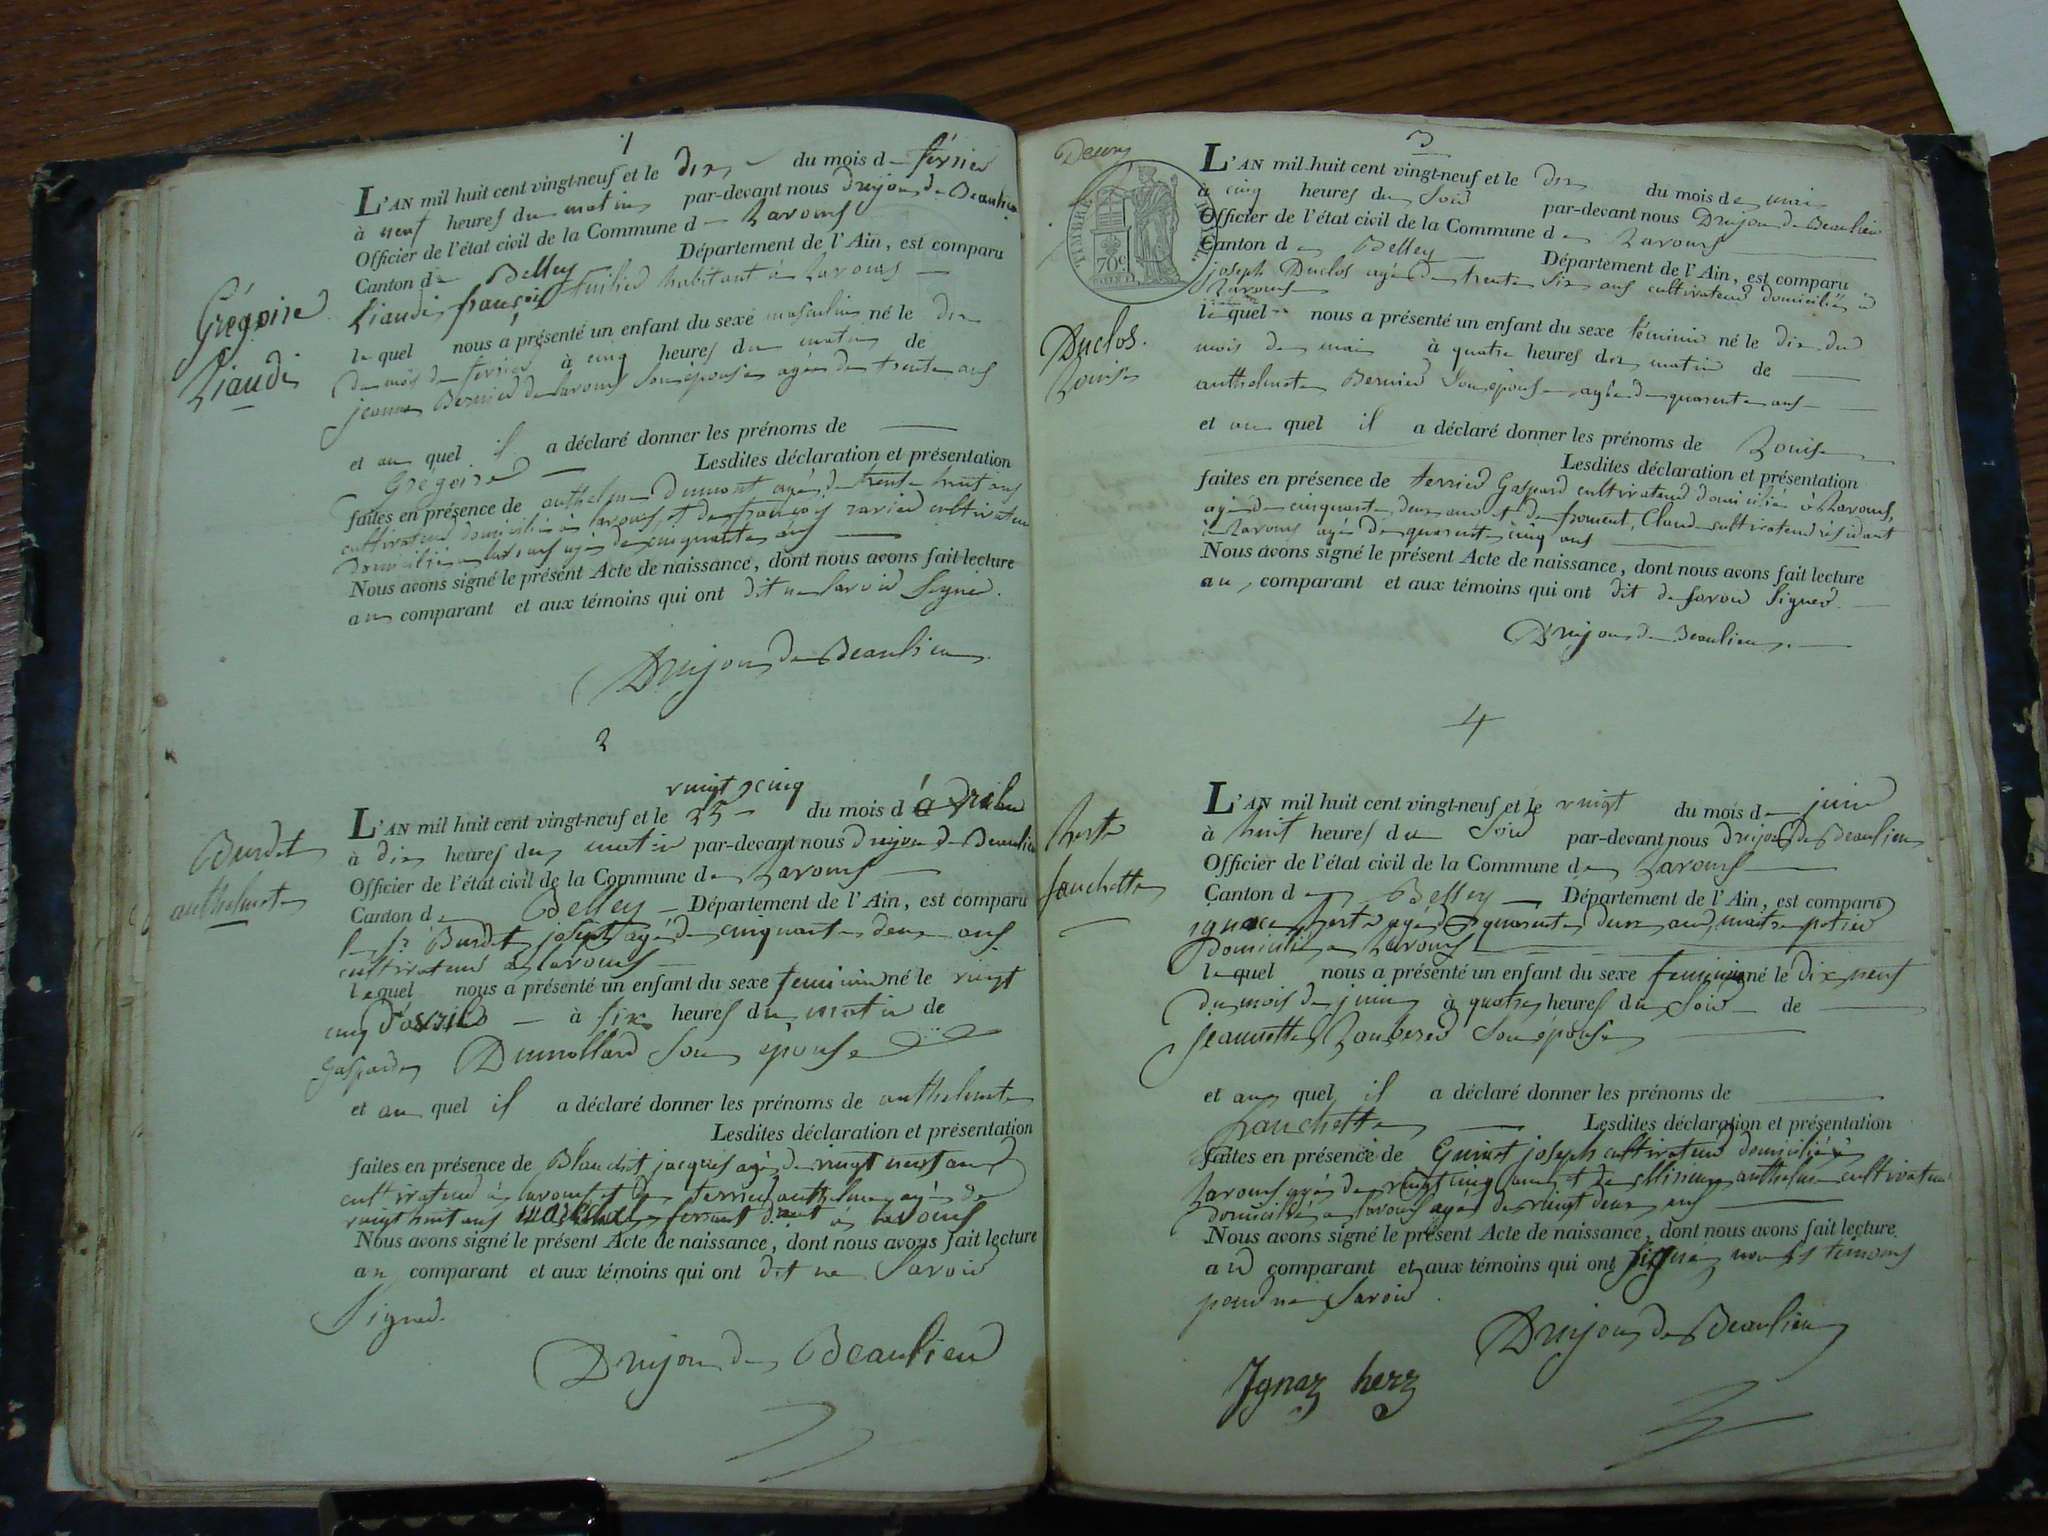 1
L'AN mil huit cent vingt-neuf et le dix du mois de février
à neuf heures du matin par-devant nous Drujon de Beaulieu
Officier de l'état civil de la Commune de Lavours
Canton de Belley Département de l'Ain, est comparu
Liaudi françois habitant à Lavours
Grégoire
Liaudi
lequel nous a présenté un enfant du sexe masculin né le dix
du mois de février à cinq heures du matin de
jeanne Bernier de lavours son épouse agée de trente ans
et au quel il a déclaré donner les prénoms de
Gregoire Lesdites déclaration et présentation
faites en présence de anthelme Dumont agé de trente huit ans
cultivateur domicilié à lavours et de françois cultivateur
domicilié a lavours agé de cinquante ans
Nous avons signé le présent Acte de naissance, dont nous avons fait lecture
au comparant et aux témoins qui ont dit ne savoir signer.
Drujon de Beaulieu
2
vingt cinq
L'AN mil huit cent vingt-neuf et le 25 du mois d'avril
à dix heures du matin par-devant nous Drujon de Beaulieu
Officier de l'état civil de la Commune de Lavours
Canton de Belley Département de l'Ain, est comparu
Burdet
anthelmete
le Sr Burdet joseph agé de cinquante deux ans
cultivateur a lavours
lequel nous a présenté un enfant du sexe feminin né le vingt
cinq d'avril à six heures du matin de
gasparde Dumollard son epouse
et au quel il a déclaré donner les prénoms de anthelmete
Lesdites déclaration et présentation
faites en présence de Blanchet jacques agé de vingt neuf ans
cultivateur à lavours et de terrier anthelme agé de
vingt huit ans ferrant à lavours
Nous avons signé le présent Acte de naissance, dont nous avons fait lecture
au comparant et aux témoins qui ont dit ne savoir
signer.
Drujon de Beaulieu
3
TIMBRE ROYAL
70c
L'AN mil huit cent vingt-neuf et le dix du mois de mai
à cinq heures du soir par-devant nous Drujon de Beaulieu
Officier de l'état civil de la Commune de Lavours
Canton de Belley Département de l'Ain, est comparu
joseph Duclos agé de trente six ans cultivateur domicilié à
Lavours
Duclos.
Louise
lequel nous a présenté un enfant du sexe féminin né le dix du
mois de mai à quatre heures du matin de
anthelmete Bernier son épouse agée de quarente ans
et au quel il a déclaré donner les prénoms de Louise
Lesdites déclaration et présentation
faites en présence de terrier Gaspard cultivateur domicilié à Lavours,
agé de cinquante deux ans et de froment, Claude cultivateur résidant
à Lavours agé de quarente cinq ans
Nous avons signé le présent Acte de naissance, dont nous avons fait lecture
au comparant et aux témoins qui ont dit de savoir signer.
Drujon de Beaulieu.
4
L'AN mil huit cent vingt-neuf et le vingt du mois de juin
à huit heures du soir par-devant nous Drujon de Beaulieu
Officier de l'état civil de la Commune de Lavours
Canton de Belley Département de l'Ain, est comparu
herte
fanchette
ignace herte agé de quarente deux ans, maitre potier
domicilié a Lavours
lequel nous a présenté un enfant du sexe feminin né le dix neuf
du mois de juin à quatre heures du soir de
jeannette son épouse
et au quel il a déclaré donner les prénoms de
fanchette Lesdites déclaration et présentation
faites en présence de Guinet joseph cultivateur domicilié à
Lavours agé de vingt cinq ans et de anthelme cultivateur
domicilié a lavours agé de vingt deux ans
Nous avons signé le présent Acte de naissance, dont nous avons fait lecture
au comparant et aux témoins qui ont signé non les témoins
pour ne savoir.
Drujon de Beaulieu
Ignaz herz